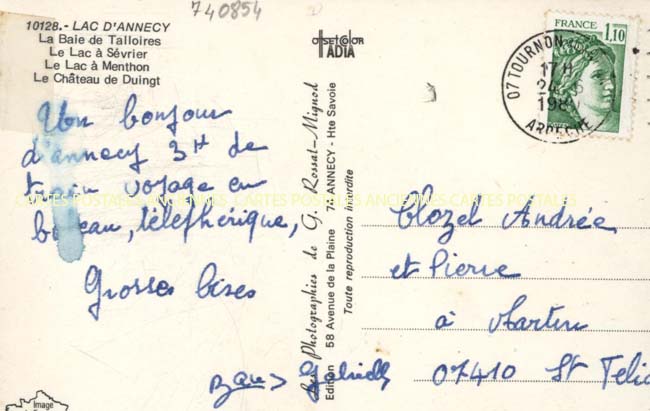 740854
10128.- LAC D'ANNECY
La Baie de Talloires
Le Lac à Sévrier
Le Lac à Menthon
Le Château de Duingt
OFFSETCOLOR
IADIA
FRANCE
1,10
07 TOURNON
17 H
ARDECHE
Un bonjour
d'annecy 3H de
train voyage en
bateau, téléphérique,
Grosses bises
CARTES POSTALES ANCIENNES CARTES POSTALES ANCIENNES CARTES POSTALES
Les Photographies de G. Rossat-Mignod
Edition 58 Avenue de la Plaine 74-ANNECY - Hte Savoie
Toute reproduction interdite
Clozel Andrée
et Pierre
à
07410 St Félic
Gabrielle
Image